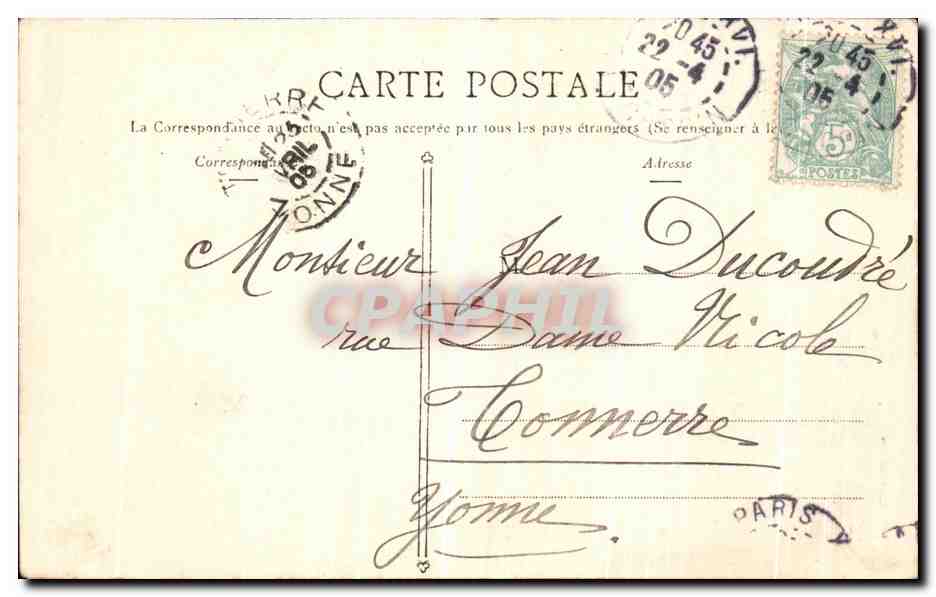 CARTE POSTALE
La Correspondance au recto n'est pas acceptée par tous les pays étrangers (Se renseigner à la
Correspondance
Adresse
Monsieur Jean Ducoudré
rue Dame Nicole
Tonnerre
Yonne
CPAPHIL
20 45
22 -4
05
20 45
22 -4
05
5c
POSTES
AVRIL
05
YONNE
PARIS